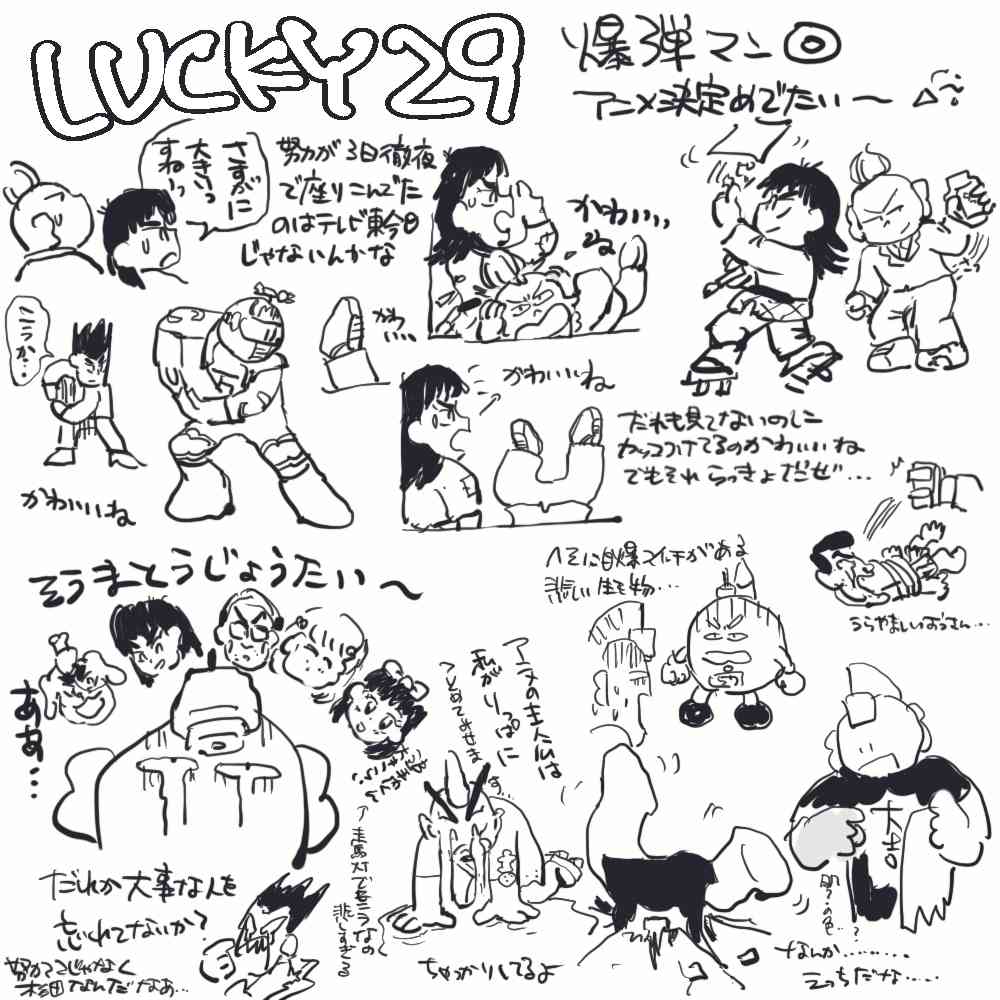 LUCKY29
爆弾マン◎
アニメ決定めでたい〜
さすがに
大きいっ
すねーっ
努力が3日徹夜
で座りこんでた
のはテレビ東今日
じゃないんかな
かわいい
ね
こうか…
かわ
いい
かわいいね
かわいいね
だれも見てないのに
カッコつけてるのかわいいね
でもそれらっきょだぜ…
そうまとうじょうたい〜
ヘソに自爆スイッチがある
悲しい生き物…
うらやましいおっさん…
ああ…
アニメの主人公は
私がりっぱに
つとめてみせま
す…
走馬灯で巻ニラなの
悲しすぎる
だれか大事な人を
忘れてないか?
ちゃっかりしてるよ
大吉
肌?の色…?
なんか………
えっちだな……